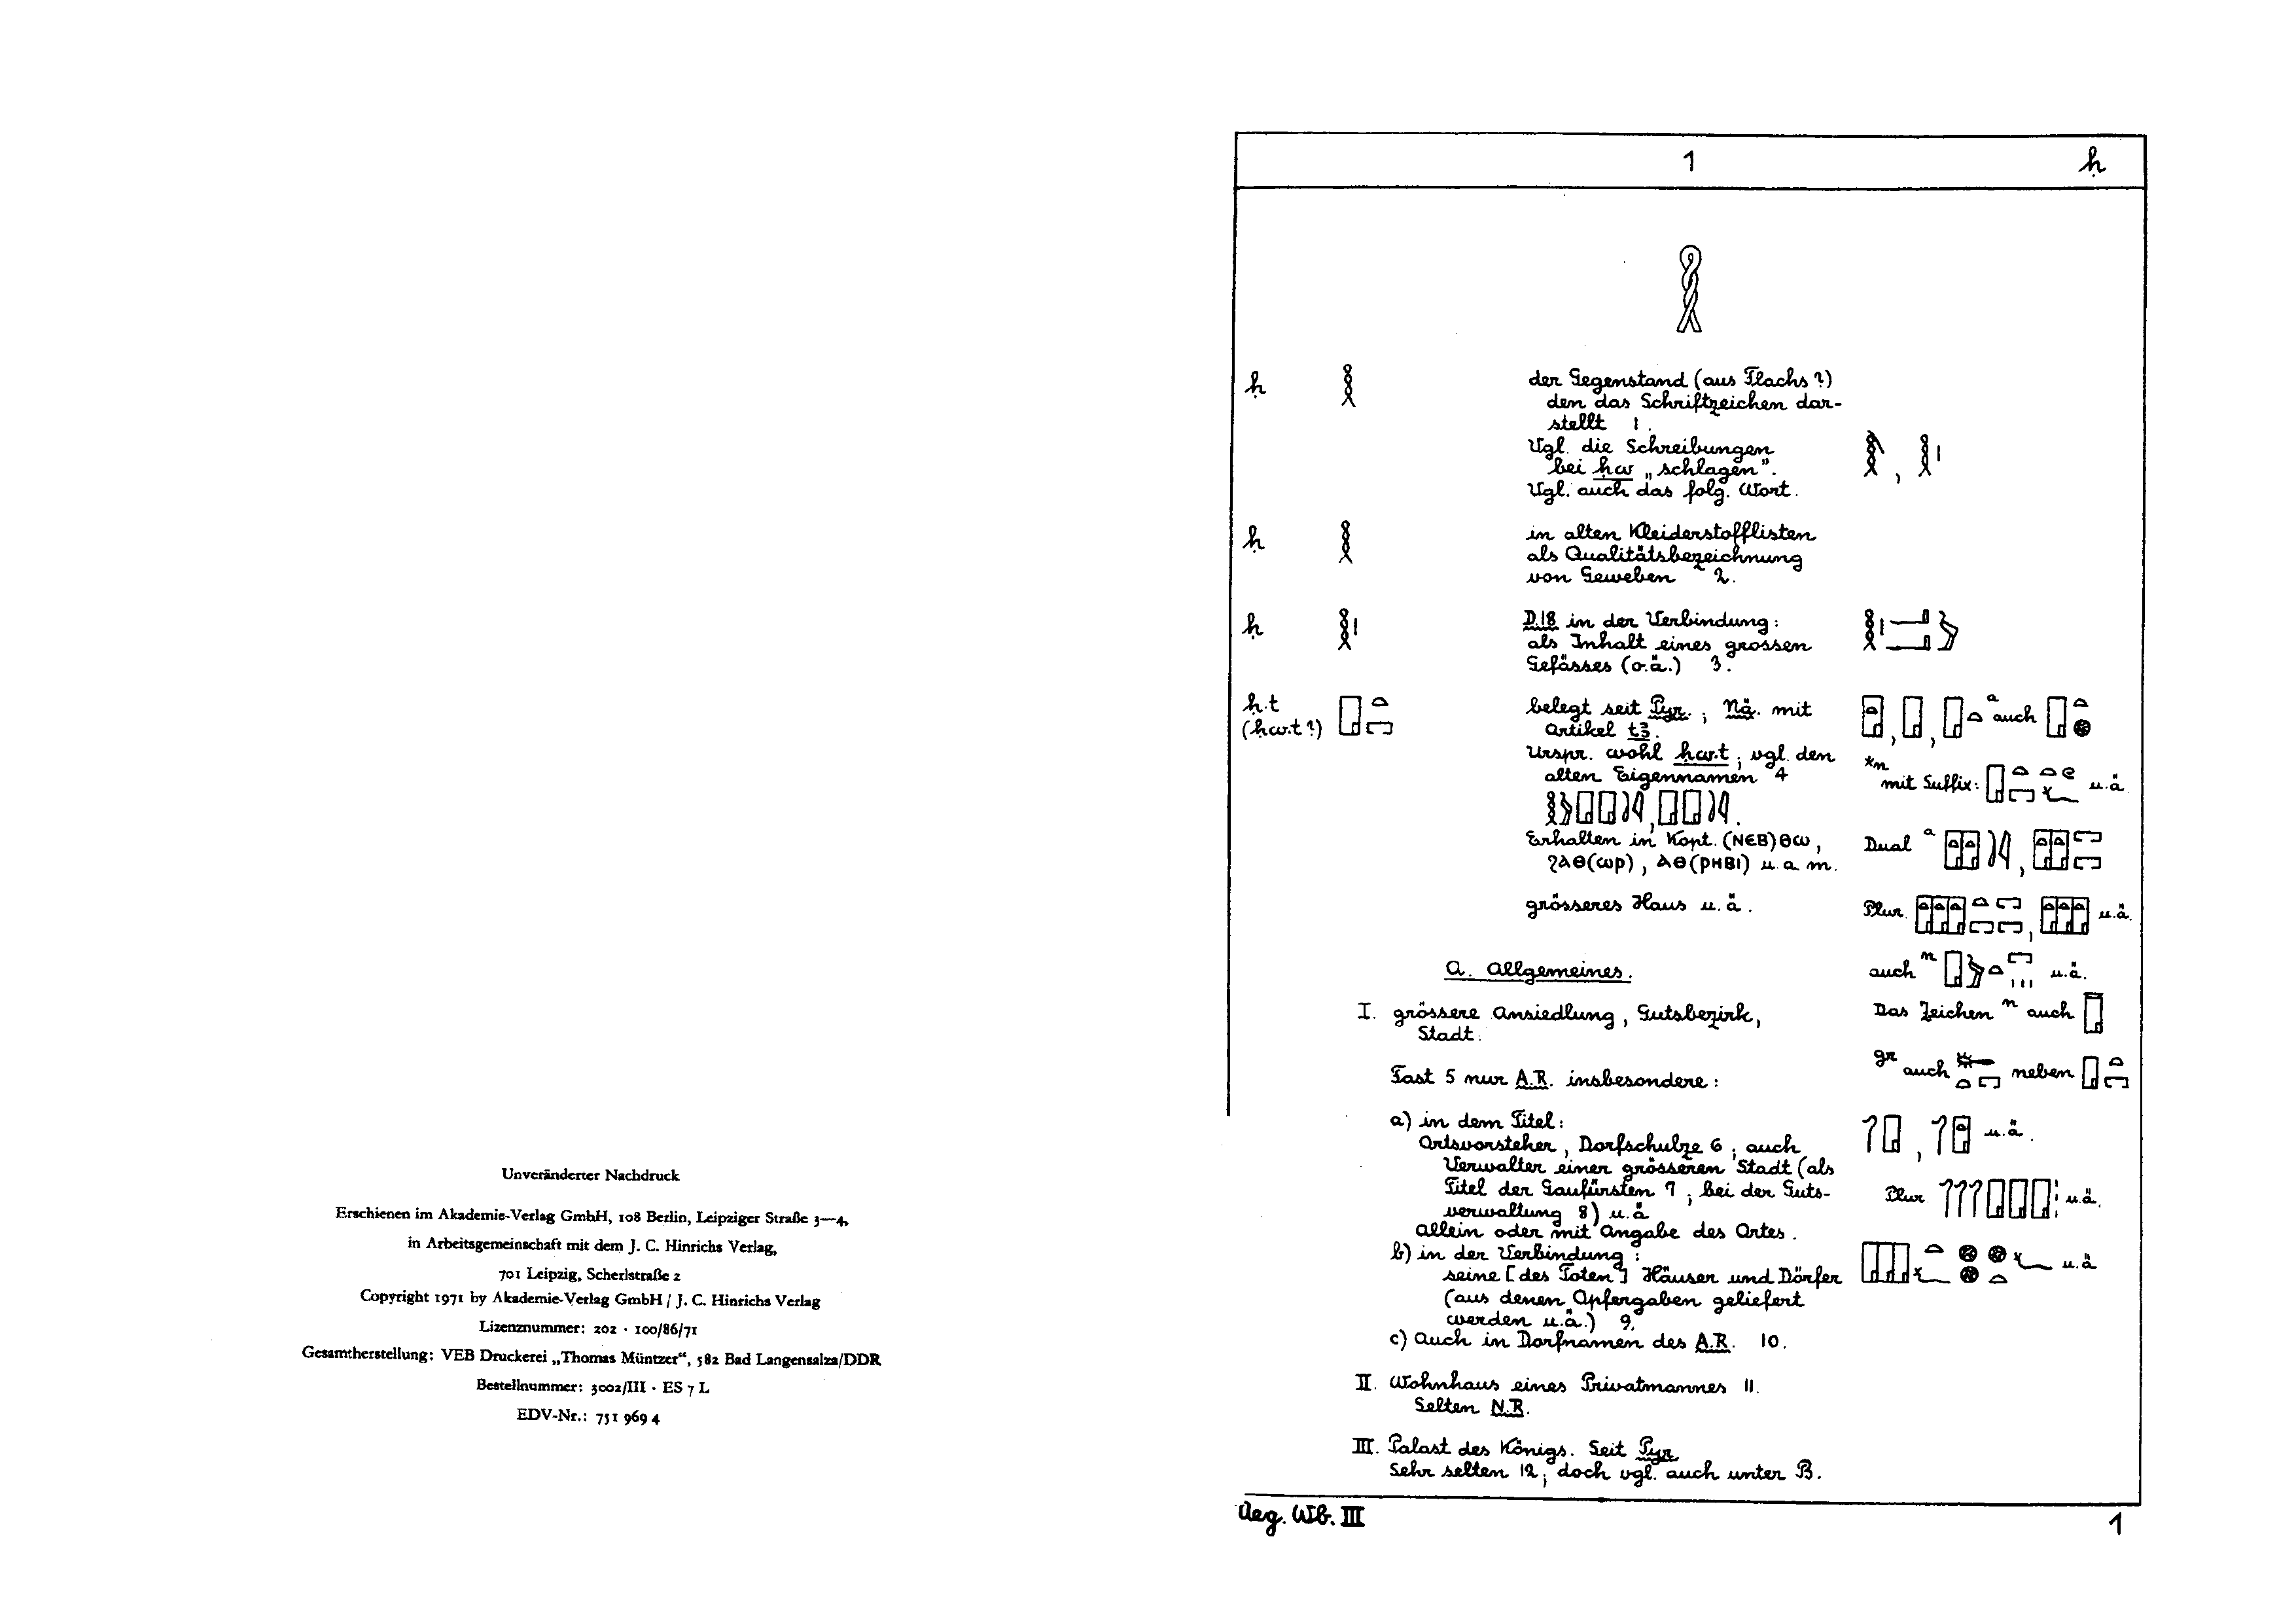 Unveränderter Nachdruck
Erschienen im Akademie-Verlag GmbH, 108 Berlin, Leipziger Straße 3—4,
in Arbeitsgemeinschaft mit dem J. C. Hinrichs Verlag,
701 Leipzig, Scherlstraße 2
Copyright 1971 by Akademie-Verlag GmbH / J. C. Hinrichs Verlag
Lizenznummer: 202 · 100/86/71
Gesamtherstellung: VEB Druckerei „Thomas Müntzer“, 582 Bad Langensalza/DDR
Bestellnummer: 3002/III · ES 7 L
EDV-Nr.: 751 969 4
1 ḥ
𓎛
ḥ 𓎛 der Gegenstand (aus Flachs?)
den das Schriftzeichen dar-
stellt 1.
Vgl. die Schreibungen
bei ḥw „schlagen“.
Vgl. auch das folg. Wort.
ḥ 𓎛 in alten Kleiderstofflisten
als Qualitätsbezeichnung
von Geweben 2.
ḥ 𓎛𓏤 D.18 in der Verbindung:
als Inhalt eines grossen
Gefässes (o.ä.) 3.
ḥ.t 𓉗𓏏𓉐 belegt seit Pyr.; Nä. mit
(ḥw.t?) Artikel tꜣ.
Urspr. wohl ḥw.t; vgl. den
alten Eigennamen 4
Erhalten in Kopt. (ⲛⲉⲃ)ⲑⲱ,
ϩⲁⲑ(ⲱⲣ), ⲁⲑ(ⲣⲏⲃⲓ) u. a. m.
grösseres Haus u. ä.
a auch
*n mit Suffix: u. ä.
Dual a
Plur. u. ä.
auch n u. ä.
Das Zeichen n auch
gr auch neben
A. Allgemeines.
I. grössere Ansiedlung, Gutsbezirk,
Stadt.
Fast 5 nur A.R. insbesondere:
a) in dem Titel: u. ä.
Ortsvorsteher, Dorfschulze 6; auch
Verwalter einer grösseren Stadt (als
Titel der Gaufürsten 7; bei der Guts- Plur. u. ä.
verwaltung 8) u. ä
Allein oder mit Angabe des Ortes.
b) in der Verbindung: u. ä
seine [des Toten] Häuser und Dörfer
(aus denen Opfergaben geliefert
werden u. ä.) 9.
c) Auch in Dorfnamen des A.R. 10.
II. Wohnhaus eines Privatmannes 11.
Selten N.R.
III. Palast des Königs. Seit Pyr
Sehr selten 12; doch vgl. auch unter B.
Aeg. Wb. III 1